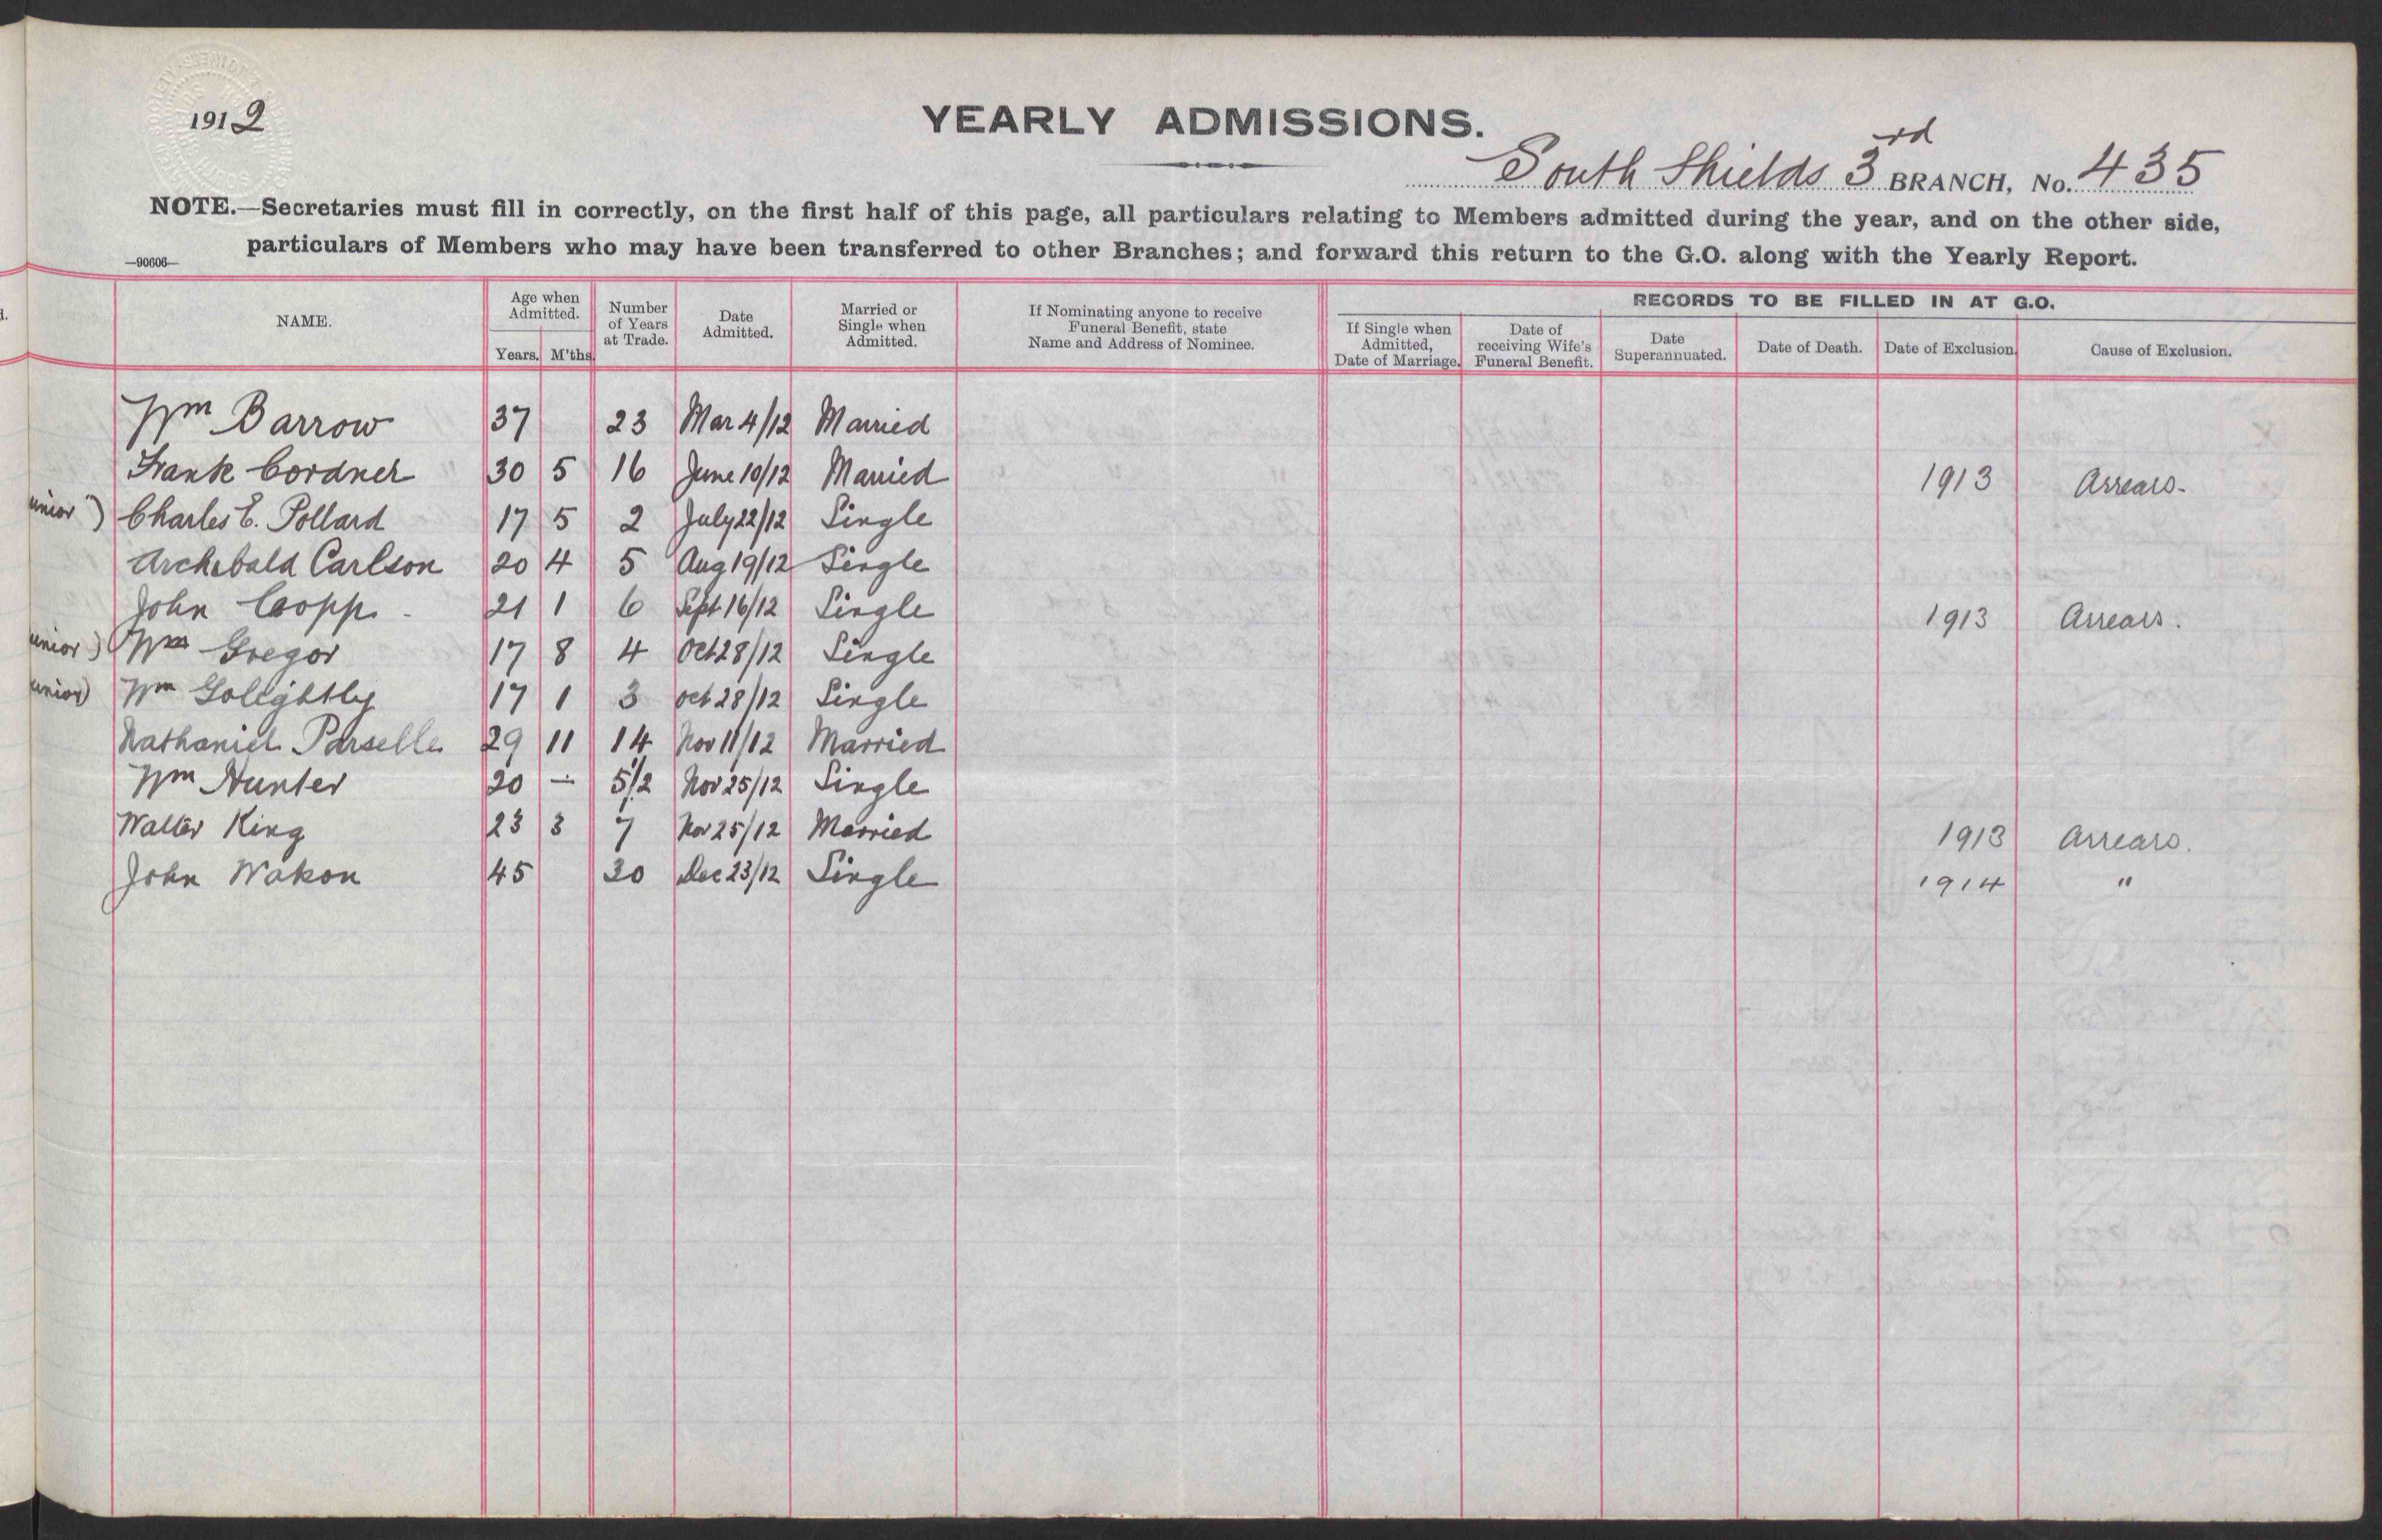 1912
YEARLY ADMISSIONS.
South Shields 3rd BRANCH, No. 435
NOTE.—Secretaries must fill in correctly, on the first half of this page, all particulars relating to Members admitted during the year, and on the other side,
particulars of Members who may have been transferred to other Branches; and forward this return to the G.O. along with the Yearly Report.
—90606—
NAME. Age when Admitted. Years. M'ths. Number of Years at Trade. Date Admitted. Married or Single when Admitted. If Nominating anyone to receive Funeral Benefit, state Name and Address of Nominee. RECORDS TO BE FILLED IN AT G.O. If Single when Admitted, Date of Marriage. Date of receiving Wife's Funeral Benefit. Date Superannuated. Date of Death. Date of Exclusion. Cause of Exclusion.
Wm Barrow 37 23 Mar 4/12 Married
Frank Cordner 30 5 16 June 10/12 Married 1913 Arrears.
unior) Charles E. Pollard 17 5 2 July 22/12 Single
Archibald Carlson 20 4 5 Aug 19/12 Single
John Copp. 21 1 6 Sept 16/12 Single 1913 Arrears.
unior) Wm Gregor 17 8 4 Oct 28/12 Single
unior) Wm Golightly 17 1 3 Oct 28/12 Single
Nathaniel Parselle 29 11 14 Nov 11/12 Married
Wm Hunter 20 — 5 1/2 Nov 25/12 Single
Walter King 23 3 7 Nov 25/12 Married 1913 Arrears.
John Watson 45 30 Dec 23/12 Single 1914 "